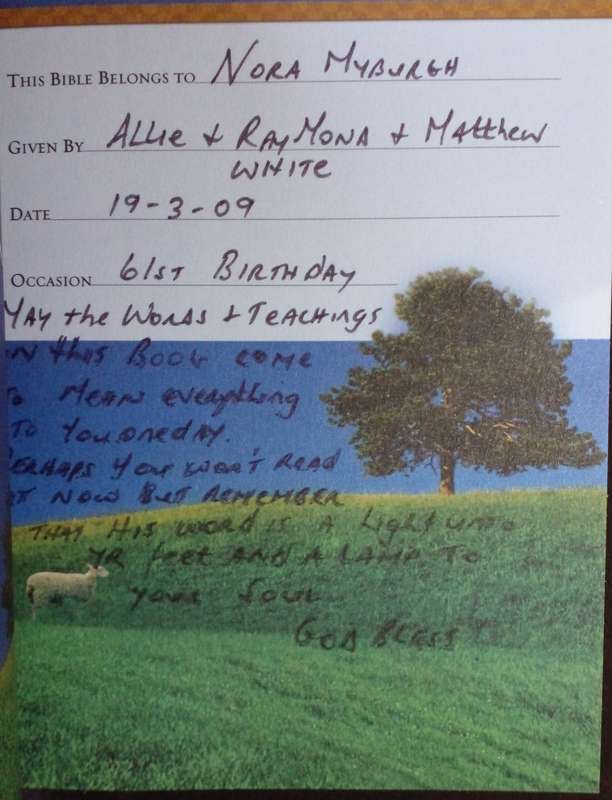 THIS BIBLE BELONGS TO NORA MYBURGH
GIVEN BY ALLIE + RAYMONA + MATTHEW
WHITE
DATE 19-3-09
OCCASION 61ST BIRTHDAY
MAY the WORDS + TEACHINGS
IN this BOOK COME
TO MEAN everything
TO YOU ONE DAY.
PERHAPS YOU WON'T READ
IT NOW BUT REMEMBER
THAT HIS WORD IS A Light unto
YR feet AND A LAMP TO
your soul
GOD BLESS